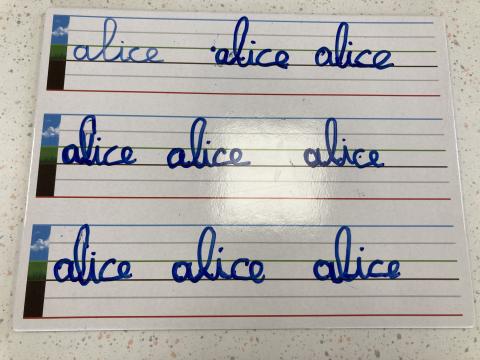 alice alice alice
alice alice alice
alice alice alice